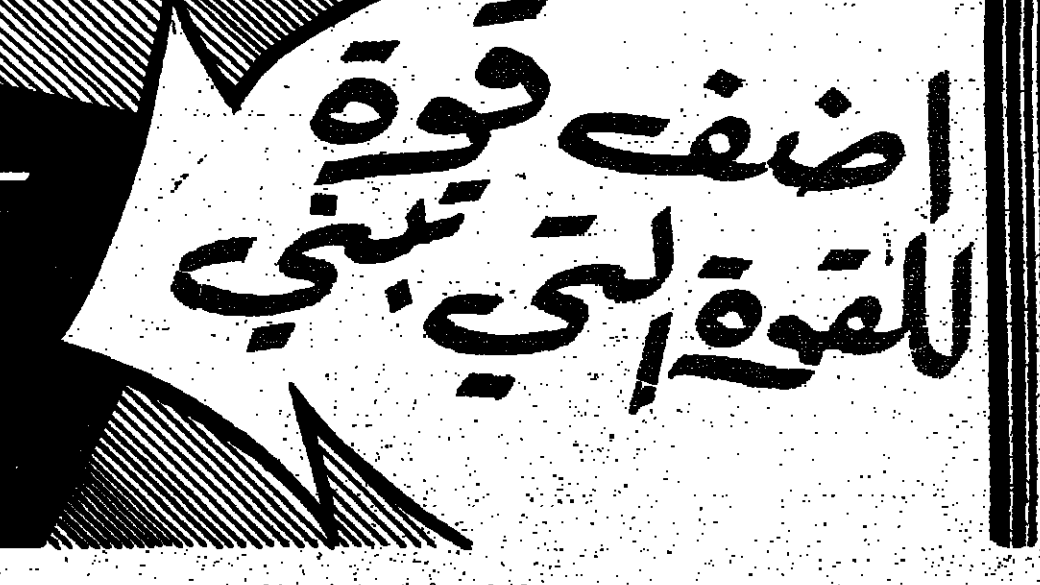 اضف قوة
للقوة التي تبني